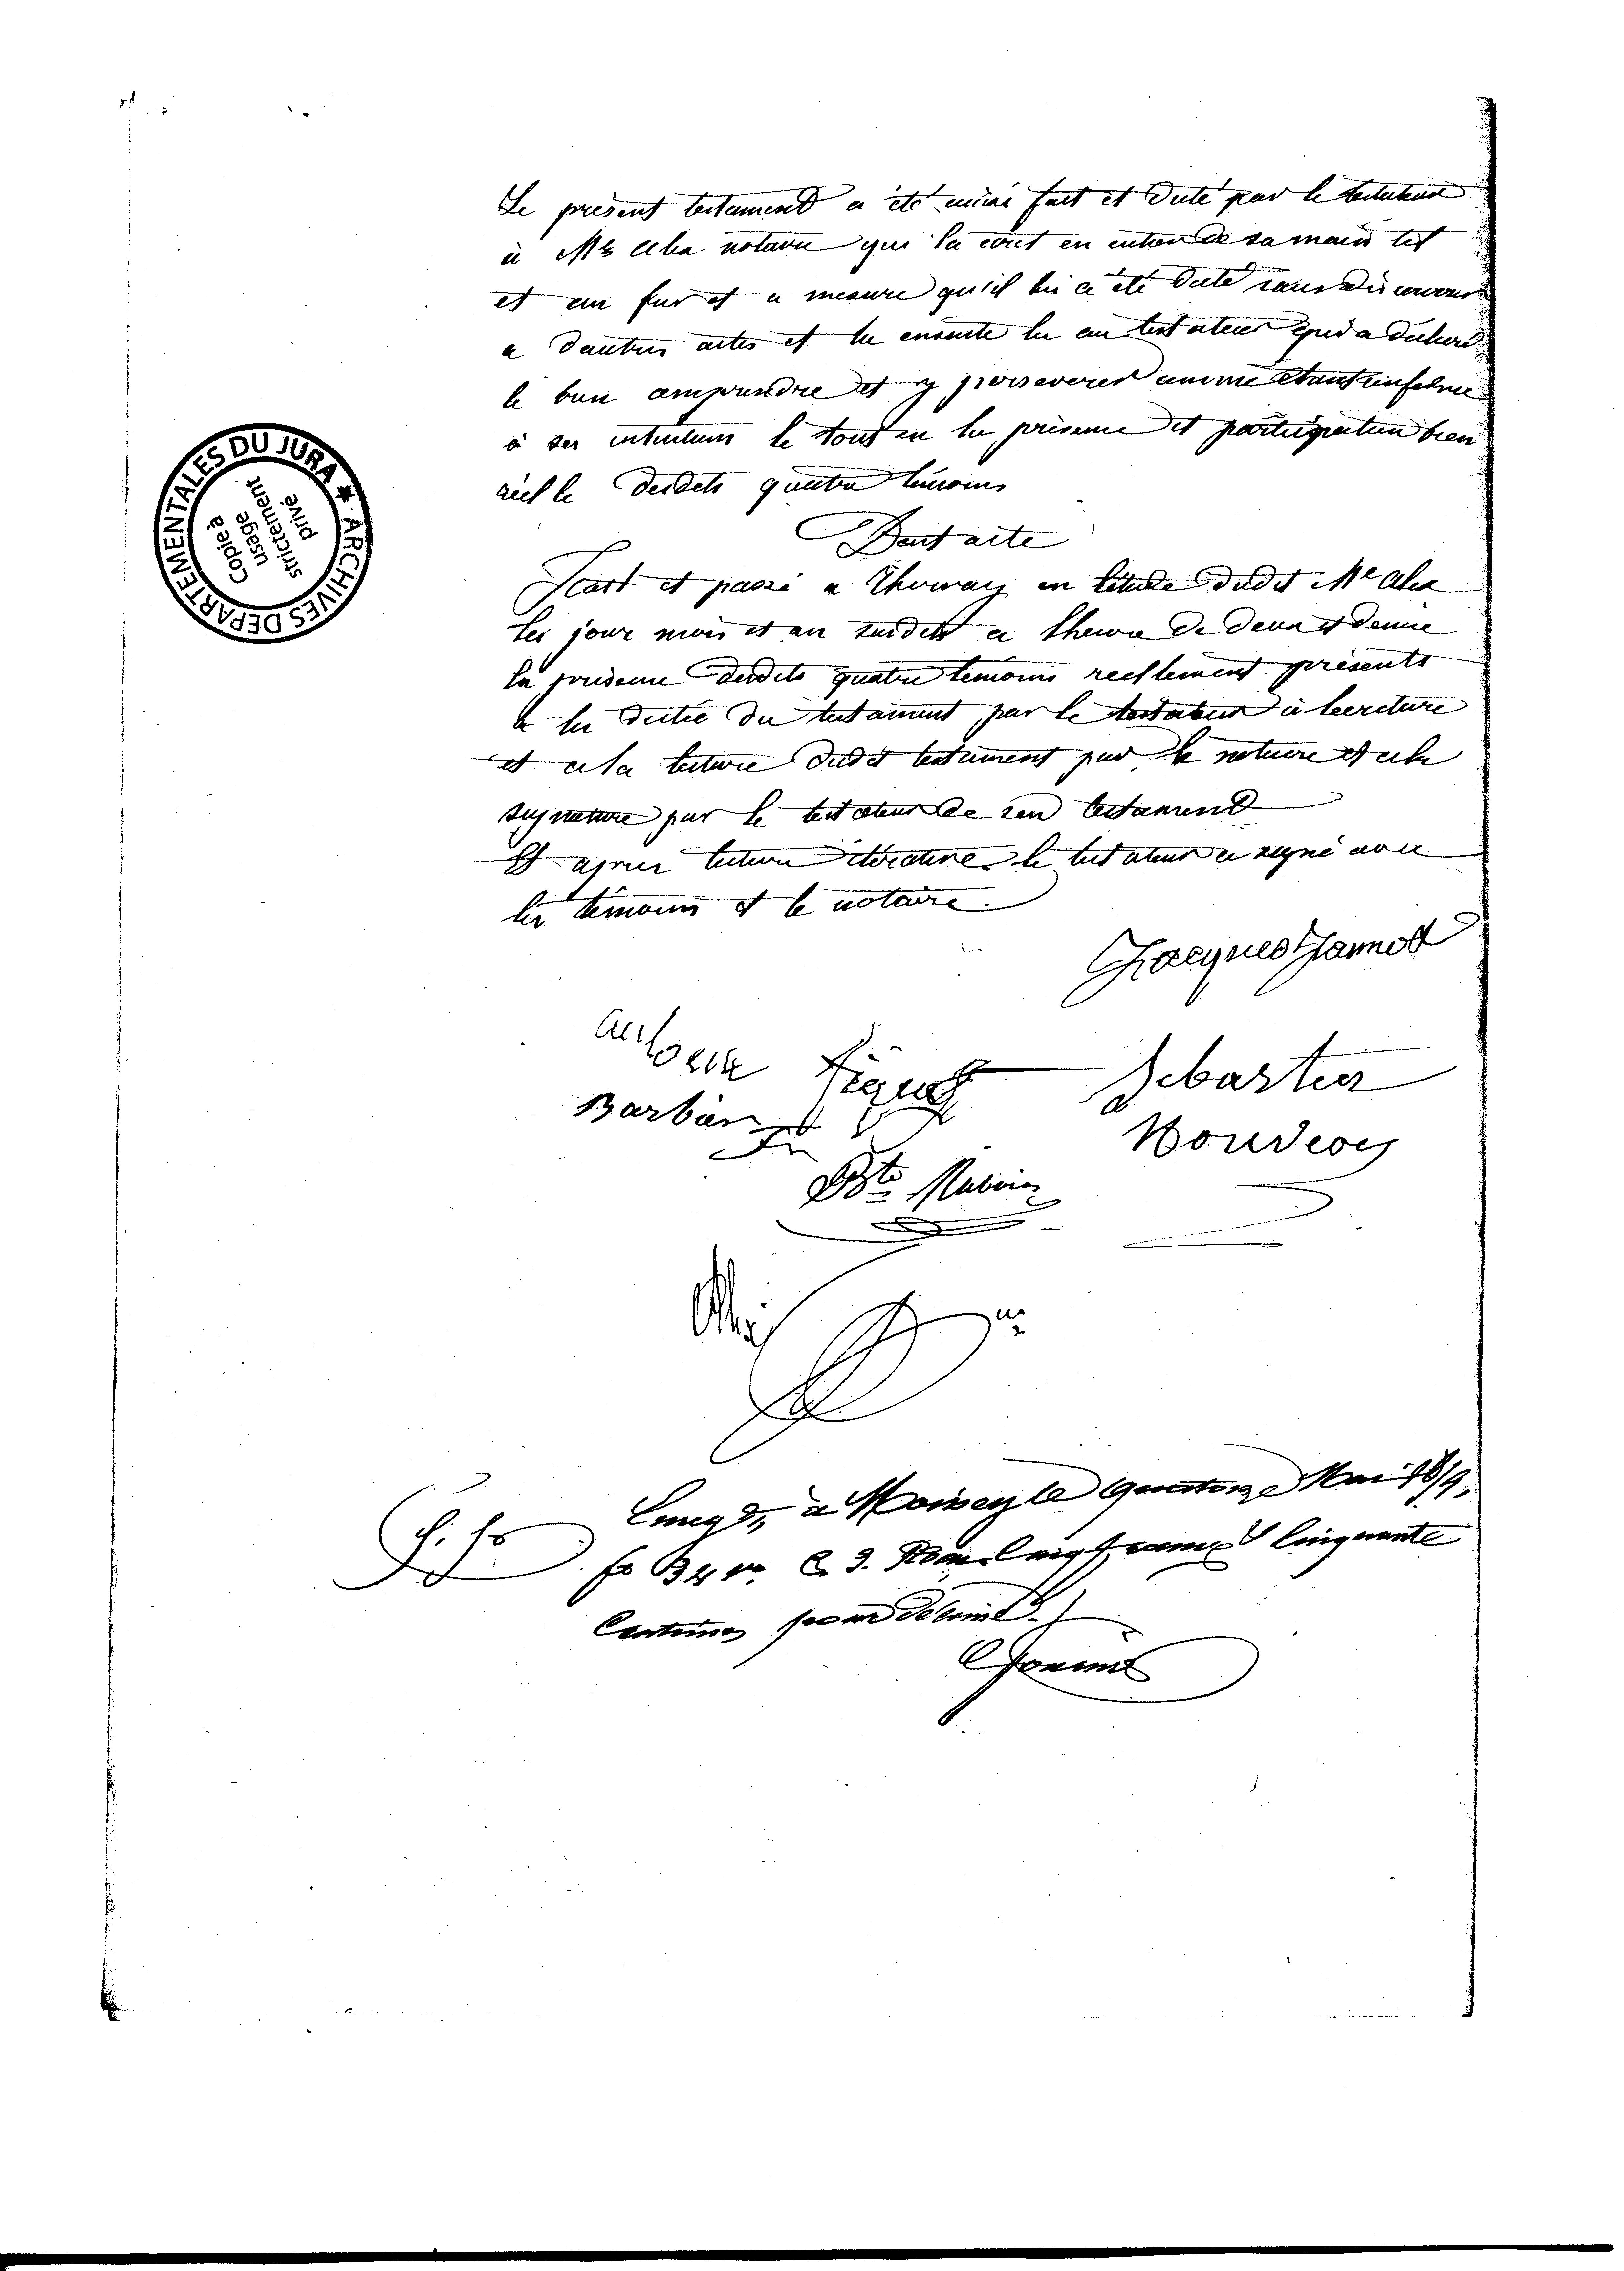 Le présent testament a été ainsi fait et dicté par le testateur
à Me Alix notaire qui l'a écrit en entier de sa main tel
et au fur et a mesure qu'il lui a été dicté sans divertir
a dautres actes et lu ensuite lu au testateur qui a déclaré
le bien comprendre et y perseverer comme étant conforme
à ses intentions le tout en la présence et participation bien
réelle desdits quatre témoins
Dont acte
Fait et passé a en létude dudit Me Alix
les jour mois et an susdits a lheure de deux et demie
la présence desdits quatre témoins reellement présents
a la dictée du testament par le testateur à lecriture
et a la lecture dudit testament par le notaire et a la
signature par le testateur de son testament
Et après lecture le testateur a signé avec
les témoins et le notaire.
Jacques
Barban
Sebastien
Bourdeois
Bte
Alix
Enreg. à Moirey le quatorze Mai
fo c 3. Reçu cinq francs Cinquante
Centimes pour